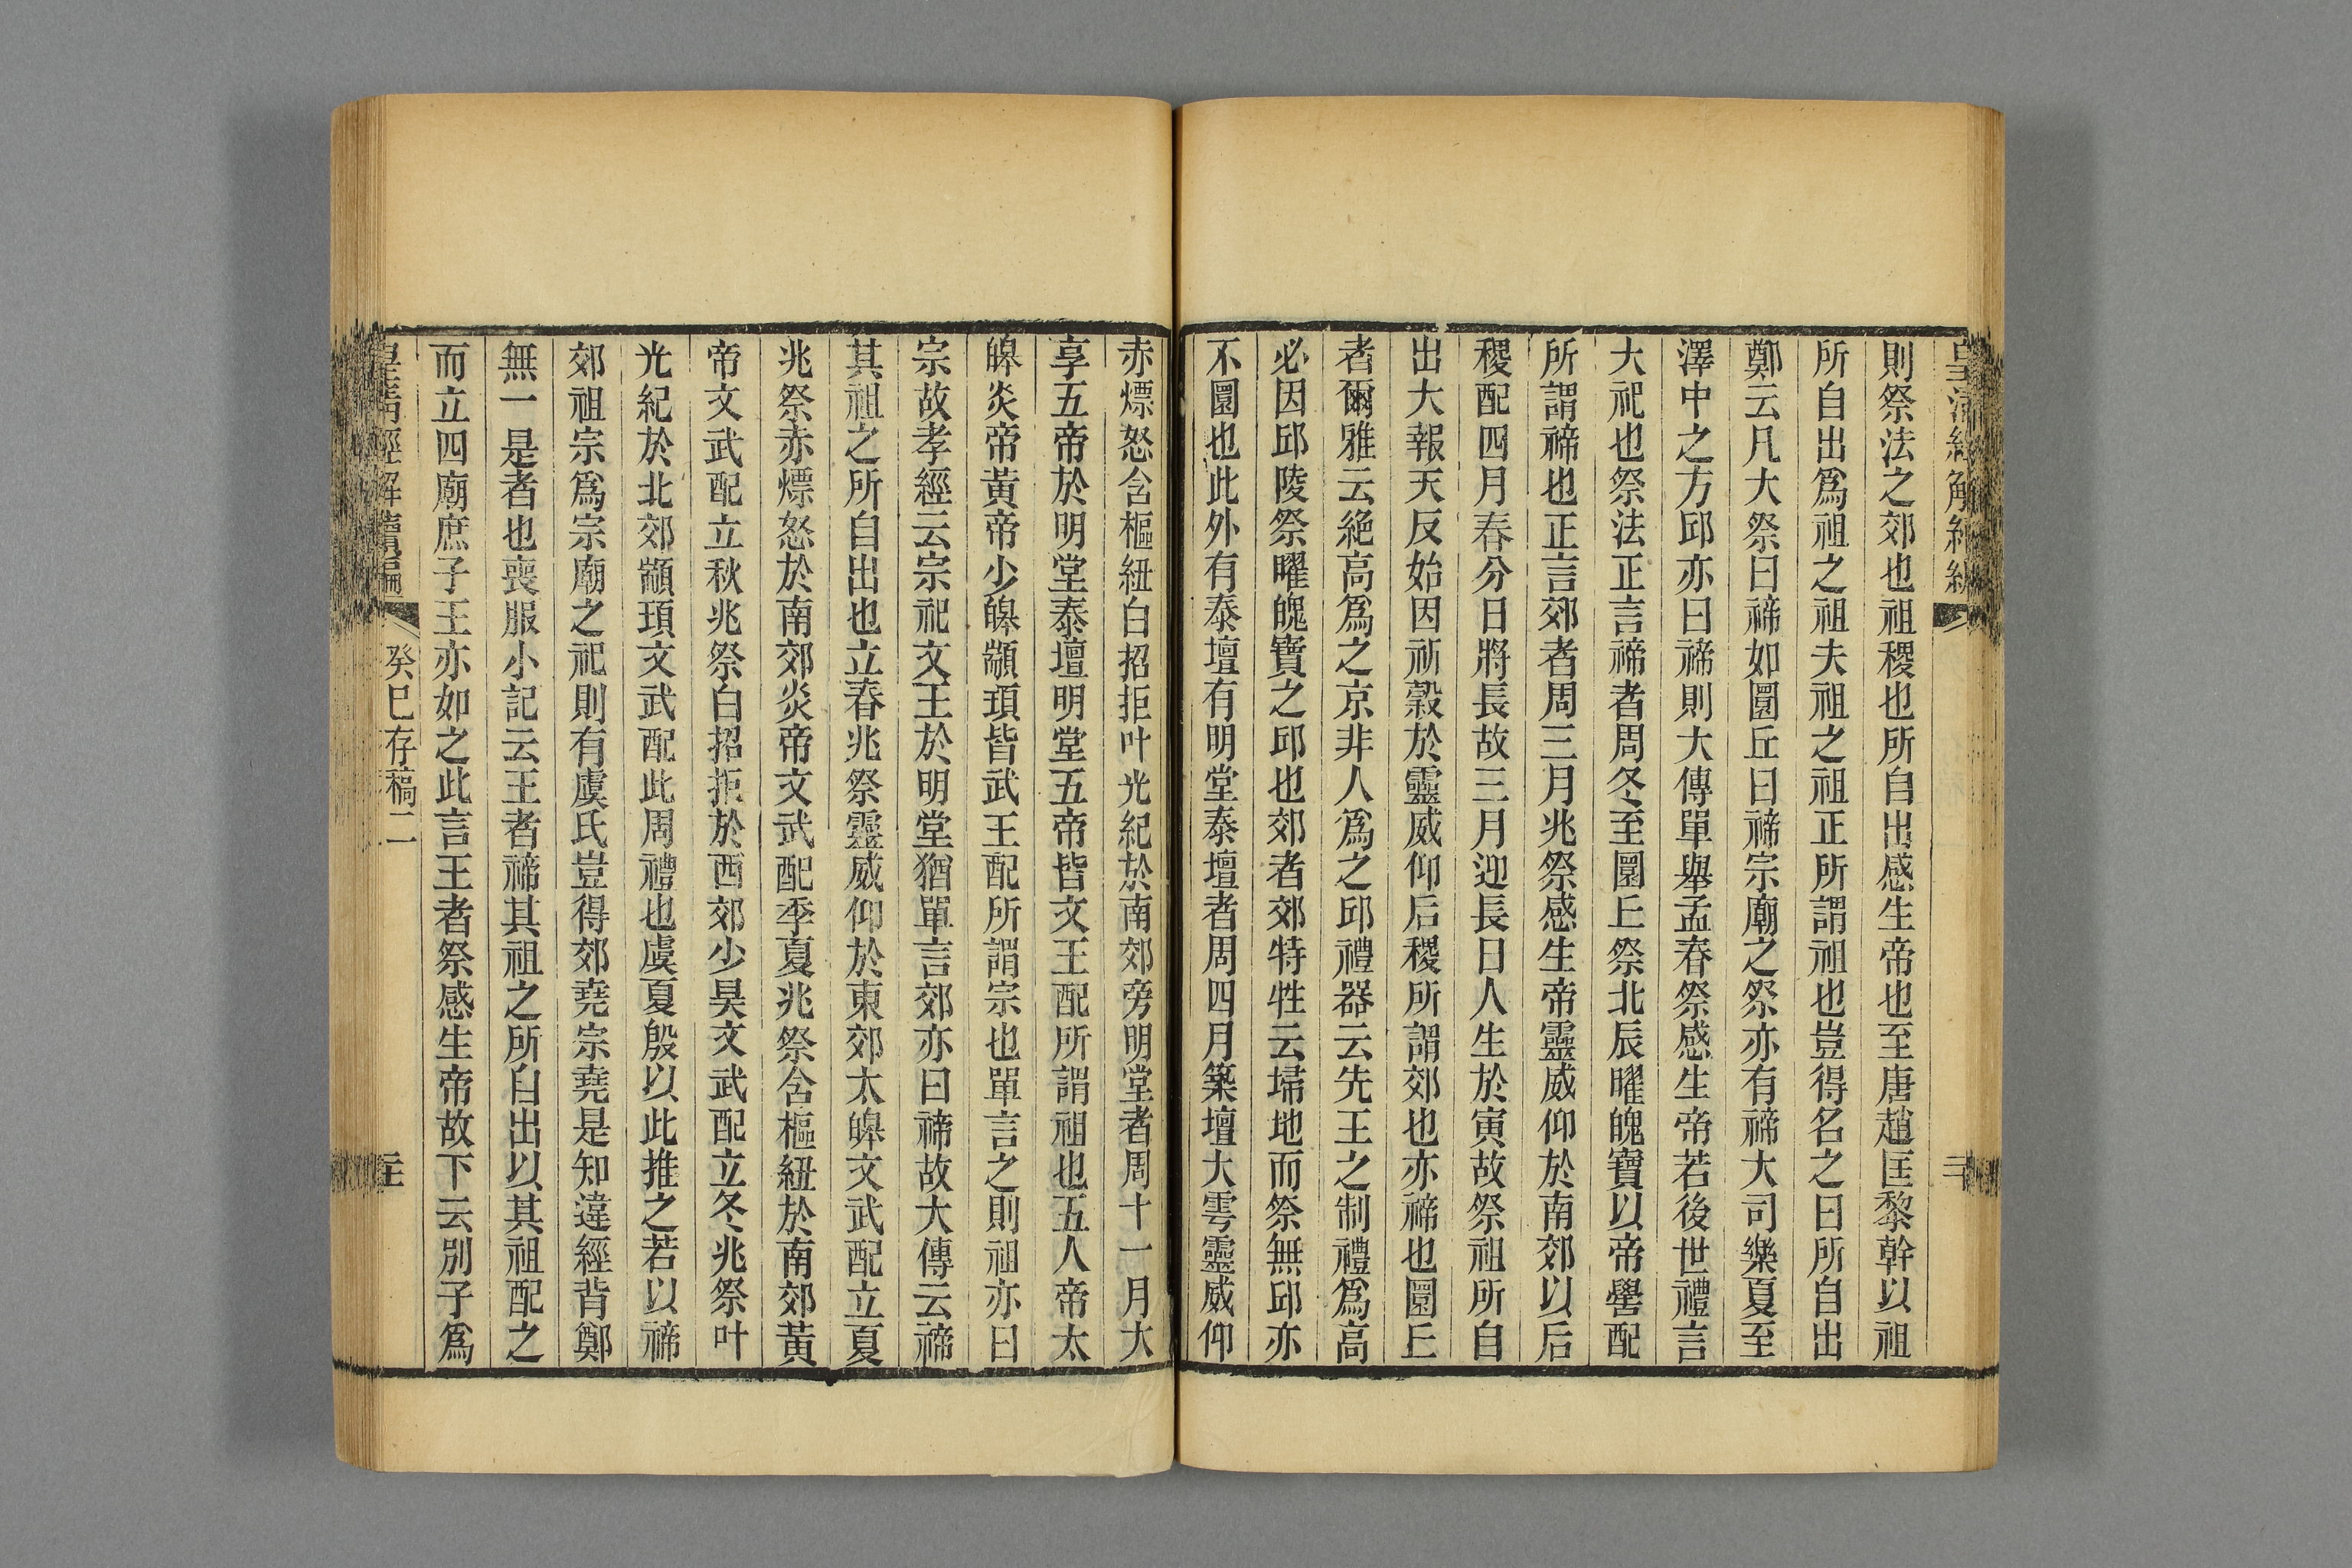 則祭法之郊也祖稷也所自出感生帝也至唐趙匡黎幹以祖
所自出爲祖之祖夫祖之祖正所謂祖也豈得名之曰所自出
鄭云凡大祭曰禘如圜丘曰禘宗廟之祭亦有禘大司樂夏至
澤中之方邱亦曰禘則大傳單舉孟春祭感生帝若後世禮言
大祀也祭法正言禘者周冬至圜丘祭北辰曜魄寶以帝嚳配
所謂禘也正言郊者周三月兆祭感生帝靈威仰於南郊以后
稷配四月春分日將長故三月迎長日人生於寅故祭祖所自
出大報天反始因祈穀於靈威仰后稷所謂郊也亦禘也圜丘
者爾雅云絶高爲之京非人爲之邱禮器云先王之制禮爲高
必因邱陵祭曜魄寶之邱也郊者郊特牲云埽地而祭無邱亦
不圜也此外有泰壇有明堂泰壇者周四月築壇大雩靈威仰
赤熛怒含樞紐白招拒叶光紀於南郊旁明堂者周十一月大
享五帝於明堂泰壇明堂五帝皆文王配所謂祖也五人帝太
皞炎帝黃帝少皞顓頊皆武王配所謂宗也單言之則祖亦曰
宗故孝經云宗祀文王於明堂猶單言郊亦曰禘故大傳云禘
其祖之所自出也立春兆祭靈威仰於東郊太皞文武配立夏
兆祭赤熛怒於南郊炎帝文武配季夏兆祭含樞紐於南郊黃
帝文武配立秋兆祭白招拒於西郊少昊文武配立冬兆祭叶
光紀於北郊顓頊文武配此周禮也虞夏殷以此推之若以禘
郊祖宗爲宗廟之祀則有虞氏豈得郊堯宗堯是知違經背鄭
無一是者也喪服小記云王者禘其祖之所自出以其祖配之
而立四廟庶子王亦如之此言王者祭感生帝故下云別子爲
皇清經解續編 癸巳存稿二